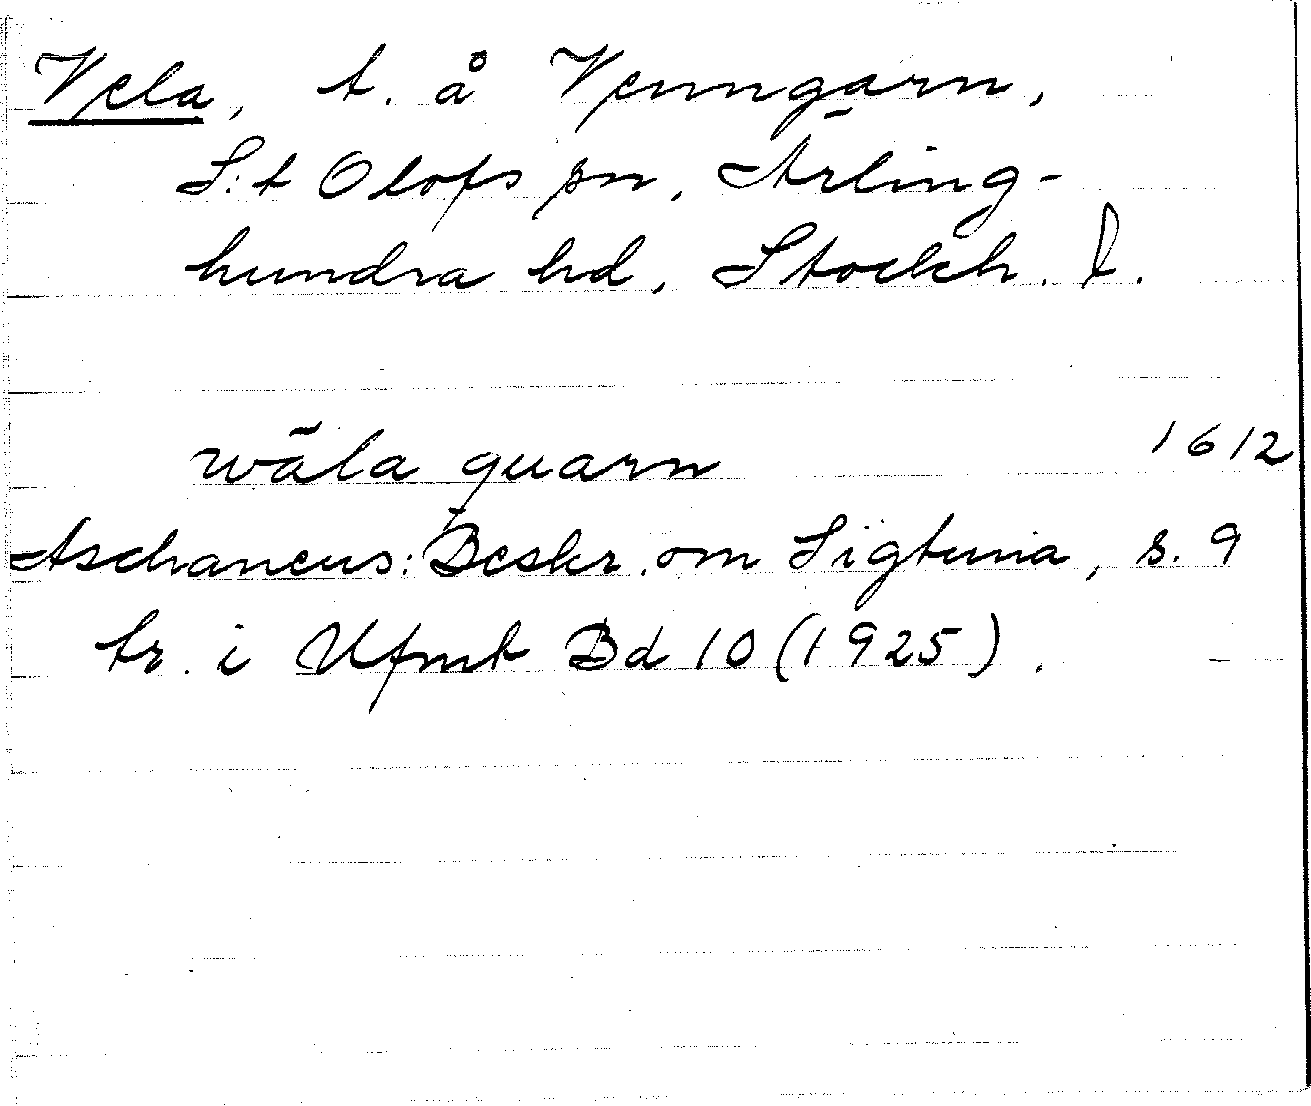 Vela, t. å Venngarn,
S:t Olofs sn, Ärling-
hundra hd, Stockh. l.
wäla quarn 1612
Aschaneus: Beskr. om Sigtuna, s. 9
tr. i Ufmt Bd 10 (1925).